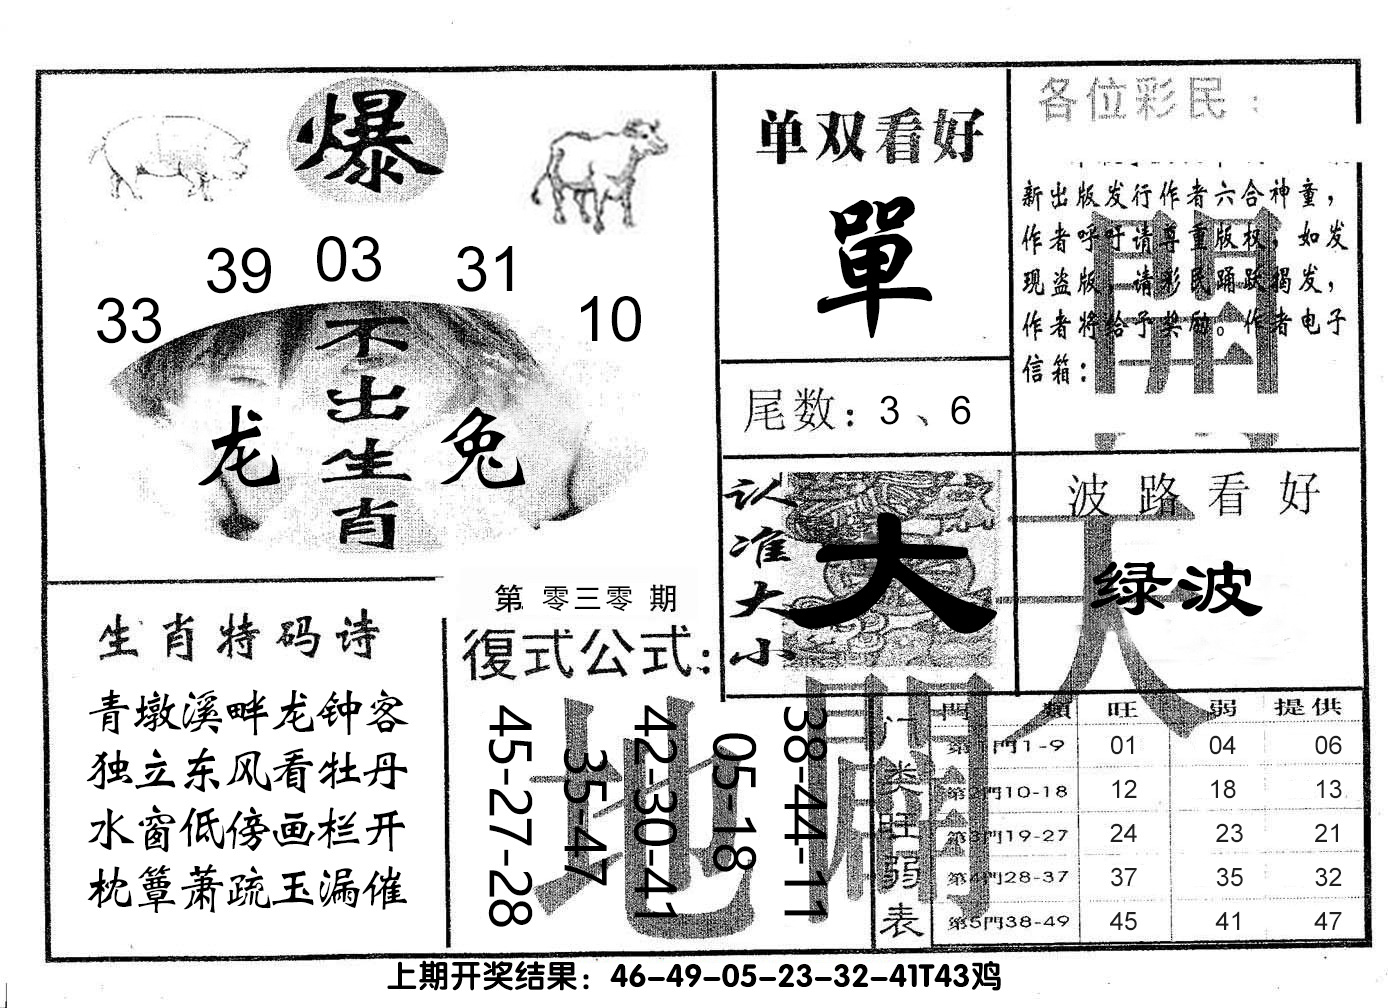 爆
33 39 03 31 10
不出生肖
龙 兔
单双看好
單
尾数：3、6
认准大小
大
各位彩民：
新出版发行作者六合神童，
作者呼吁请尊重版权，如发
现盗版，请彩民踊跃揭发，
作者将给予奖励。作者电子
信箱：
波路看好
绿波
生肖特码诗
青墩溪畔龙钟客
独立东风看牡丹
水窗低傍画栏开
枕簟萧疏玉漏催
第零三零期
復式公式：
45-27-28
35-47
42-30-41
05-18
38-44-11
天
地
開
門类旺弱表
門類 旺 弱 提供
第1門1-9 01 04 06
第2門10-18 12 18 13
第3門19-27 24 23 21
第4門28-37 37 35 32
第5門38-49 45 41 47
上期开奖结果：46-49-05-23-32-41T43鸡